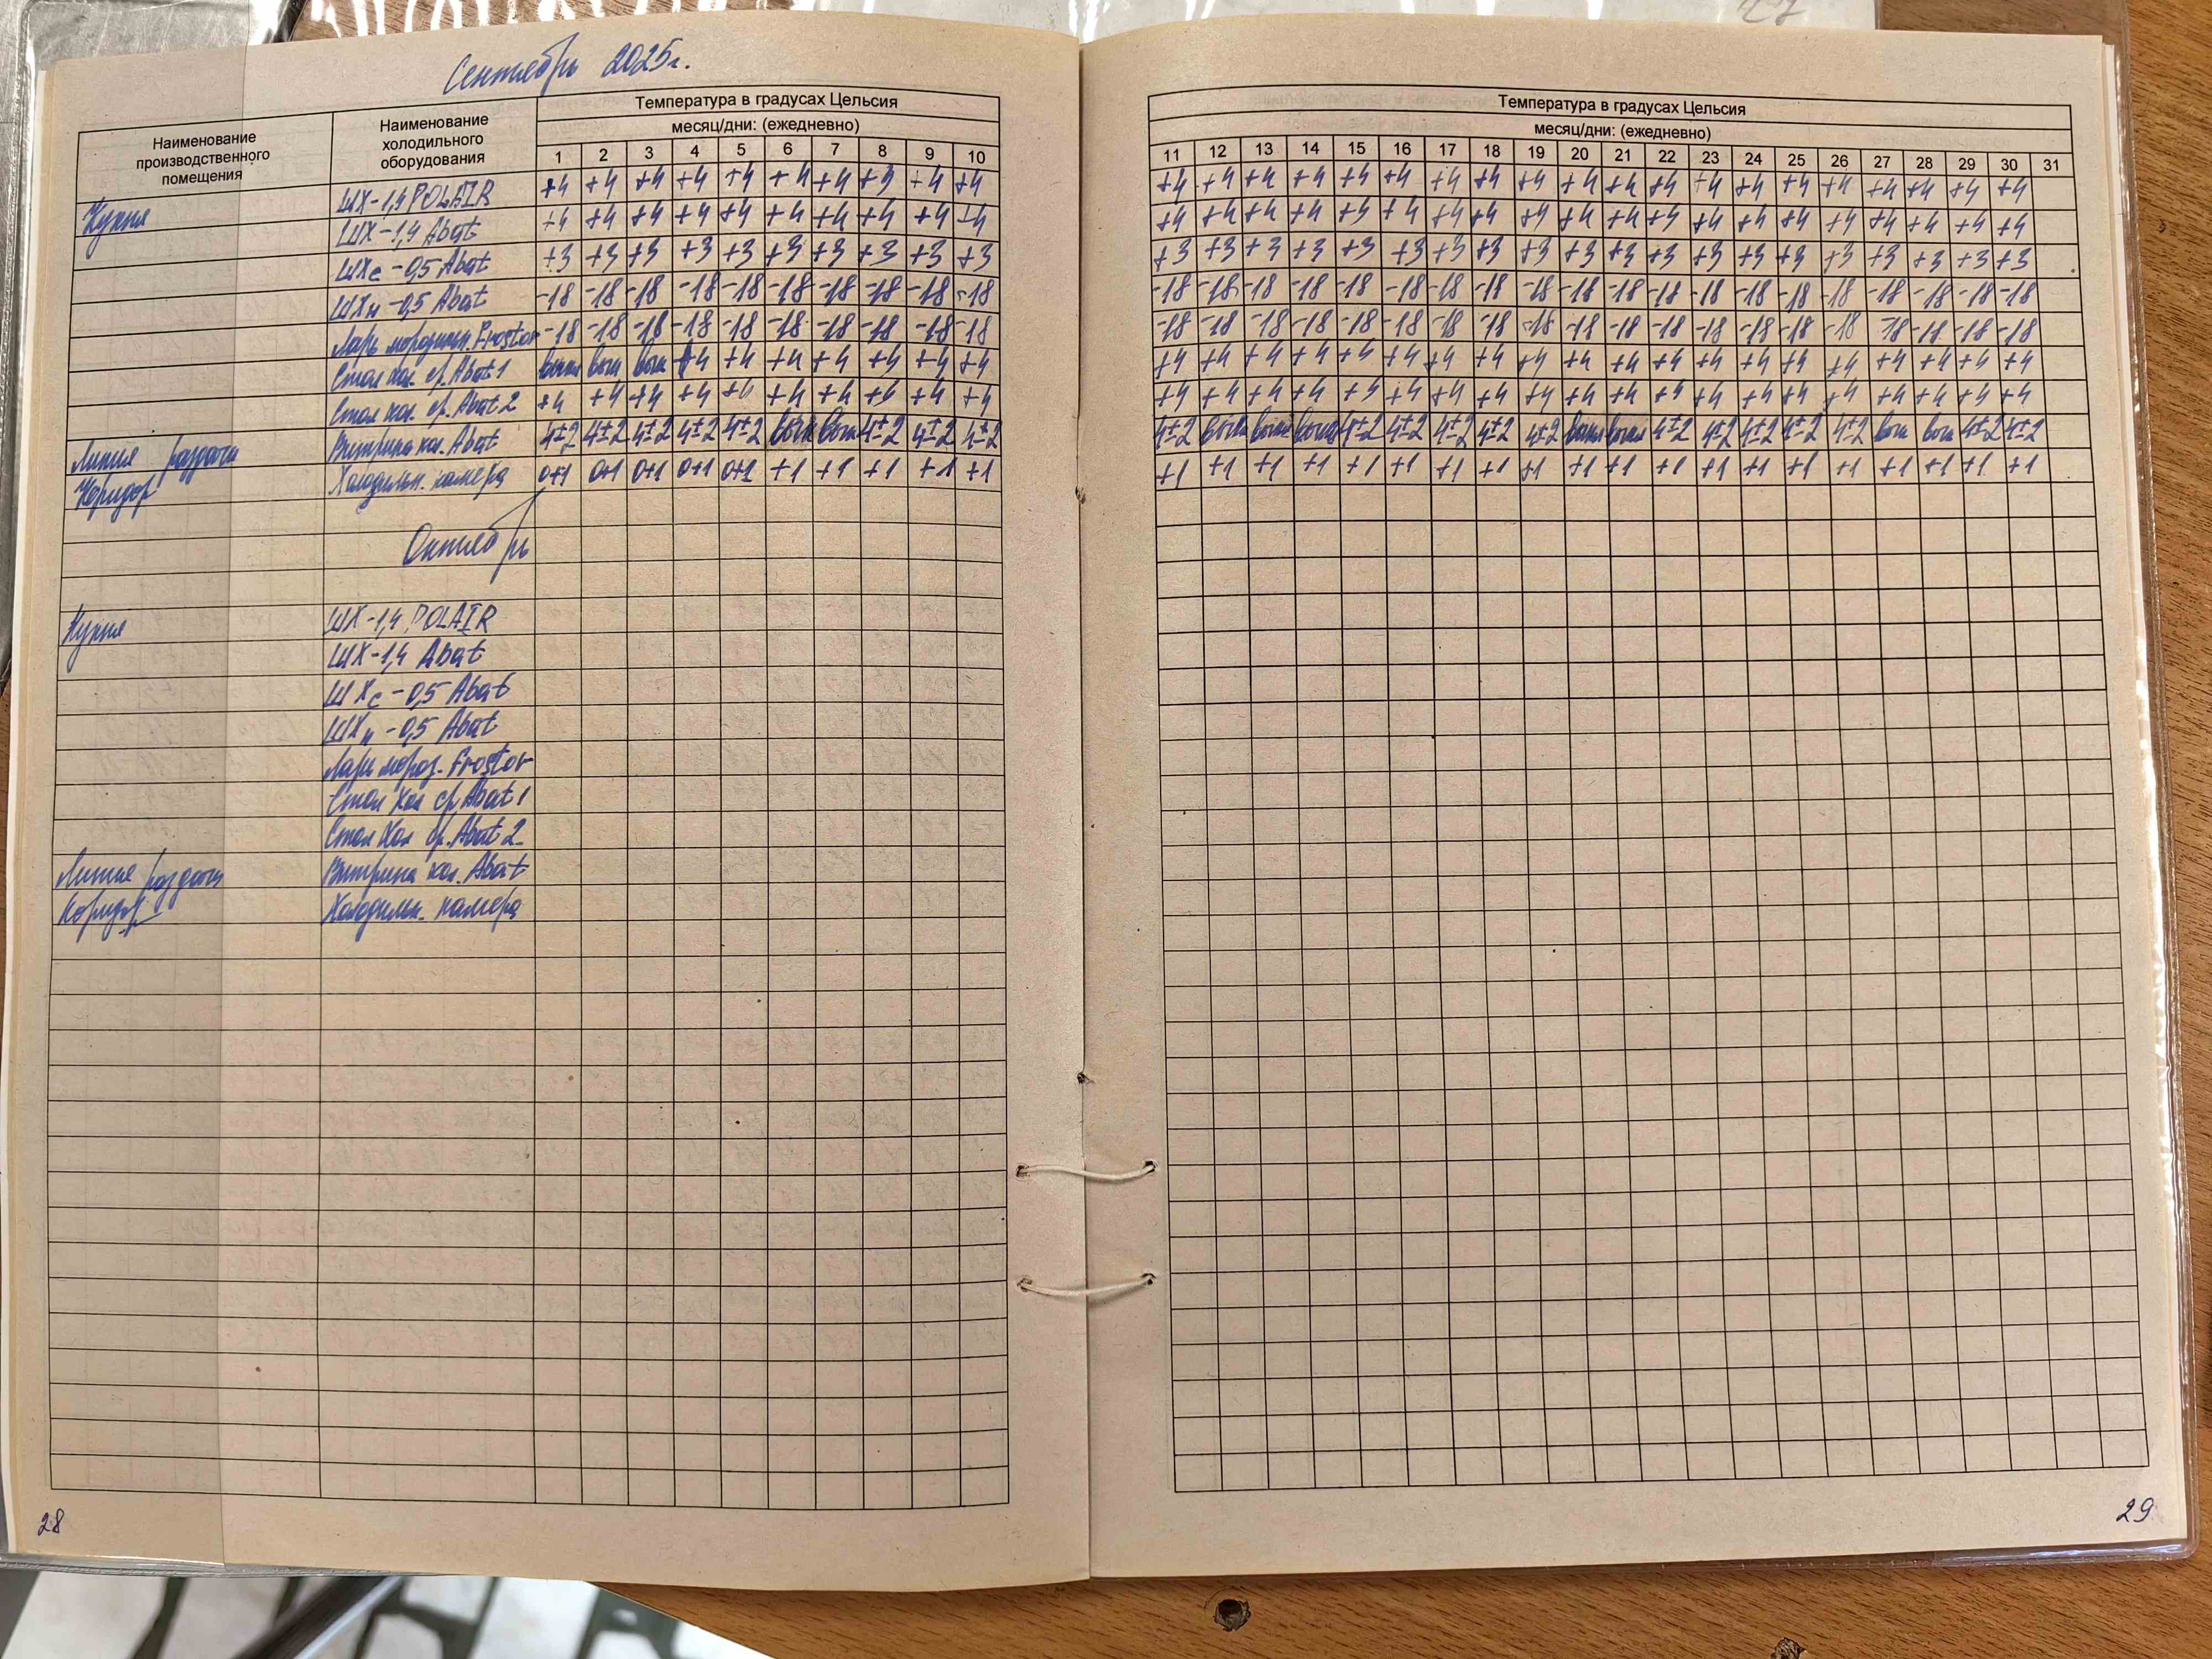 Сентябрь 2025г.
Наименование производственного помещения
Наименование холодильного оборудования
Температура в градусах Цельсия
месяц/дни: (ежедневно)
1 2 3 4 5 6 7 8 9 10
Температура в градусах Цельсия
месяц/дни: (ежедневно)
11 12 13 14 15 16 17 18 19 20 21 22 23 24 25 26 27 28 29 30 31
Кухня ШХ-1,4 POLAIR +4 +4 +4 +4 +4 +4 +4 +3 +4 +4 +4 +4 +4 +4 +4 +4 +4 +4 +4 +4 +4 +4 +4 +4 +4 +4 +4 +4 +4 +4
ШХ-1,4 Abat +4 +4 +4 +4 +4 +4 +4 +4 +4 +4 +4 +4 +4 +4 +4 +4 +4 +4 +4 +4 +4 +4 +4 +4 +4 +4 +4 +4 +4
ШХс-0,5 Abat +3 +3 +3 +3 +3 +3 +3 +3 +3 +3 +3 +3 +3 +3 +3 +3 +3 +3 +3 +3 +3 +3 +3 +3 +3 +3 +3 +3 +3 +3
ШХн-0,5 Abat -18 -18 -18 -18 -18 -18 -18 -18 -18 -18 -18 -18 -18 -18 -18 -18 -18 -18 -18 -18 -18 -18 -18 -18 -18 -18 -18 -18 -18 -18
Ларь морозильн. Frostor -18 -18 -18 -18 -18 -18 -18 -18 -18 -18 -18 -18 -18 -18 -18 -18 -18 -18 -18 -18 -18 -18 -18 -18 -18 -18 -18 -18 -18 -18
Стол хол. ср. Abat 1 выкл выкл выкл +4 +4 +4 +4 +4 +4 +4 +4 +4 +4 +4 +4 +4 +4 +4 +4 +4 +4 +4 +4 +4 +4 +4 +4 +4 +4 +4
Стол хол. ср. Abat 2 +4 +4 +4 +4 +4 +4 +4 +4 +4 +4 +4 +4 +4 +4 +4 +4 +4 +4 +4 +4 +4 +4 +4 +4 +4 +4 +4 +4 +4
Линия раздачи Витрина хол. Abat 4±2 4±2 4±2 4±2 4±2 выкл выкл 4±2 4±2 4±2 4±2 выкл выкл выкл 4±2 4±2 4±2 4±2 4±2 выкл выкл 4±2 4±2 4±2 4±2 4±2 выкл выкл 4±2 4±2
Коридор Холодильн. камера 0+1 0+1 0+1 0+1 0+1 +1 +1 +1 +1 +1 +1 +1 +1 +1 +1 +1 +1 +1 +1 +1 +1 +1 +1 +1 +1 +1 +1 +1 +1 +1
Октябрь
Кухня ШХ-1,4 POLAIR
ШХ-1,4 Abat
ШХс-0,5 Abat
ШХн-0,5 Abat
Ларь мороз. Frostor
Стол хол ср Abat 1
Стол хол ср. Abat 2
Линия раздачи Витрина хол. Abat
Коридор Холодильн. камера
28
29